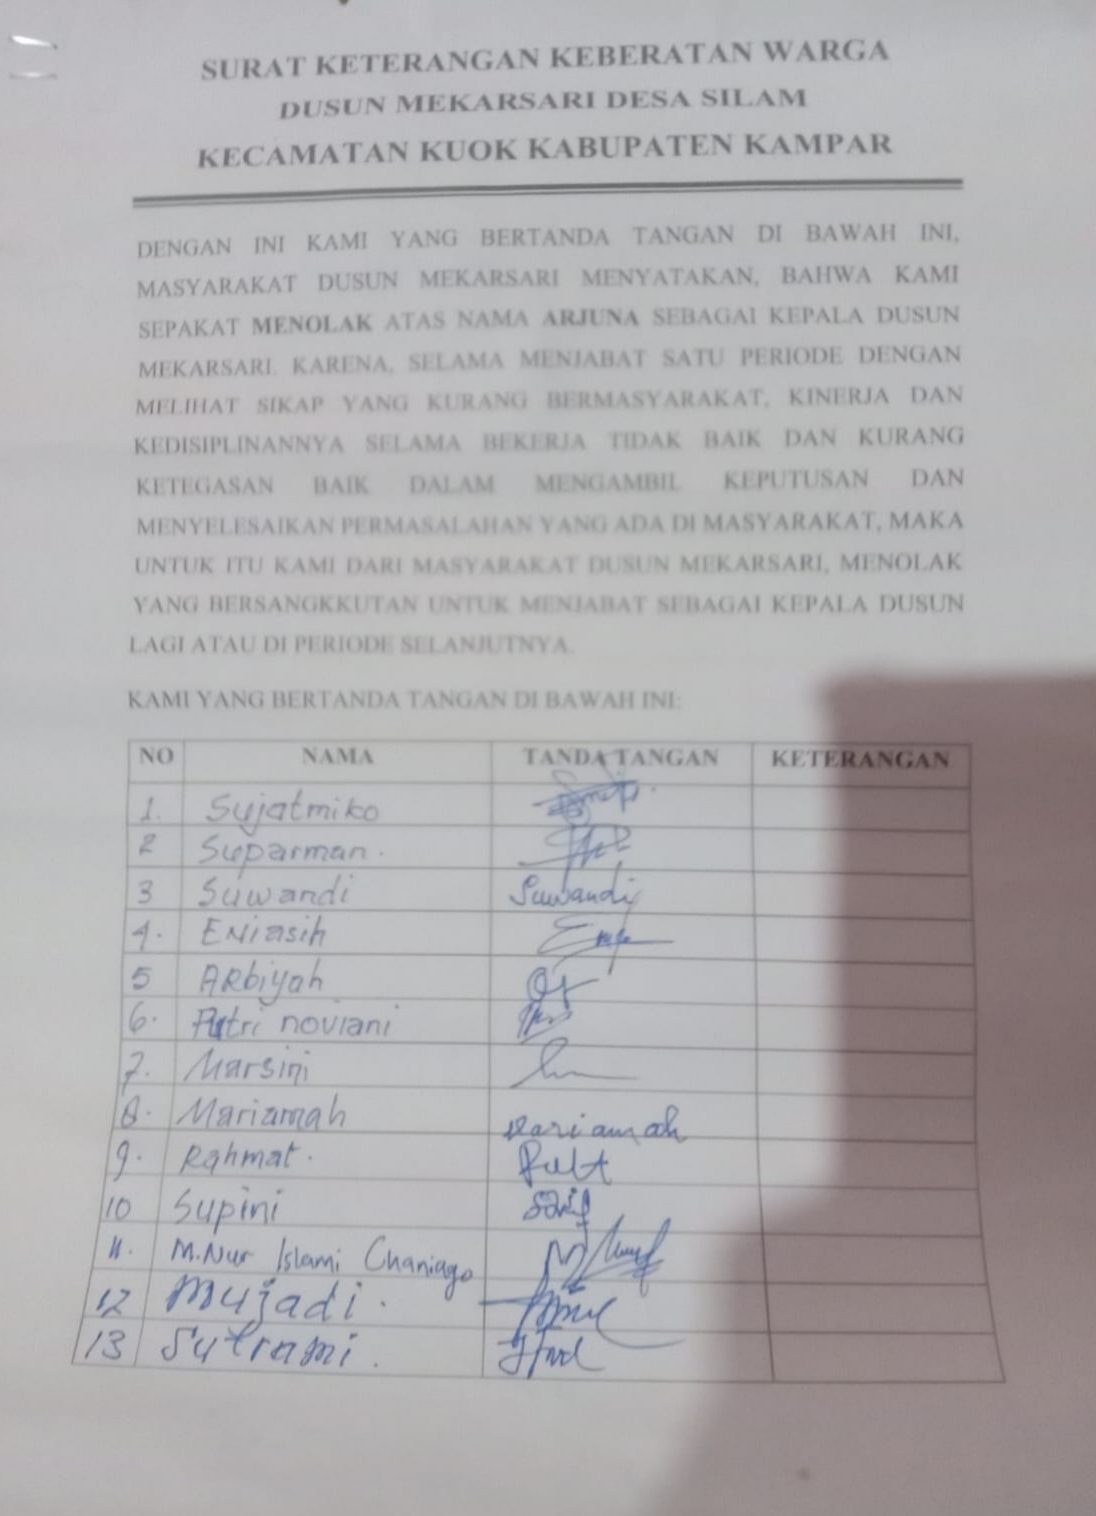 SURAT KETERANGAN KEBERATAN WARGA
DUSUN MEKARSARI DESA SILAM
KECAMATAN KUOK KABUPATEN KAMPAR
DENGAN INI KAMI YANG BERTANDA TANGAN DI BAWAH INI,
MASYARAKAT DUSUN MEKARSARI MENYATAKAN, BAHWA KAMI
SEPAKAT MENOLAK ATAS NAMA ARJUNA SEBAGAI KEPALA DUSUN
MEKARSARI. KARENA, SELAMA MENJABAT SATU PERIODE DENGAN
MELIHAT SIKAP YANG KURANG BERMASYARAKAT, KINERJA DAN
KEDISIPLINANNYA SELAMA BEKERJA TIDAK BAIK DAN KURANG
KETEGASAN BAIK DALAM MENGAMBIL KEPUTUSAN DAN
MENYELESAIKAN PERMASALAHAN YANG ADA DI MASYARAKAT, MAKA
UNTUK ITU KAMI DARI MASYARAKAT DUSUN MEKARSARI, MENOLAK
YANG BERSANGKKUTAN UNTUK MENJABAT SEBAGAI KEPALA DUSUN
LAGI ATAU DI PERIODE SELANJUTNYA.
KAMI YANG BERTANDA TANGAN DI BAWAH INI:
NO NAMA TANDA TANGAN KETERANGAN
1. Sujatmiko
2 Suparman.
3 Suwandi Suwandi
4. ENiasih
5 ARbiyah
6. Putri noviani
7. Marsini
8. Mariamah Mariamah
9. Rahmat.
10 Supini
11. M.Nur Islami Chaniago
12 Mujadi.
13 Sutrami.